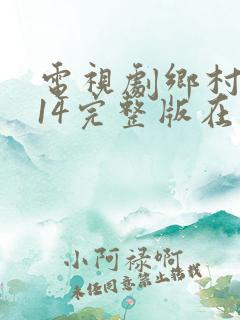 電視劇鄉村
14完整版在
小阿祿啊
未經同意禁止轉載